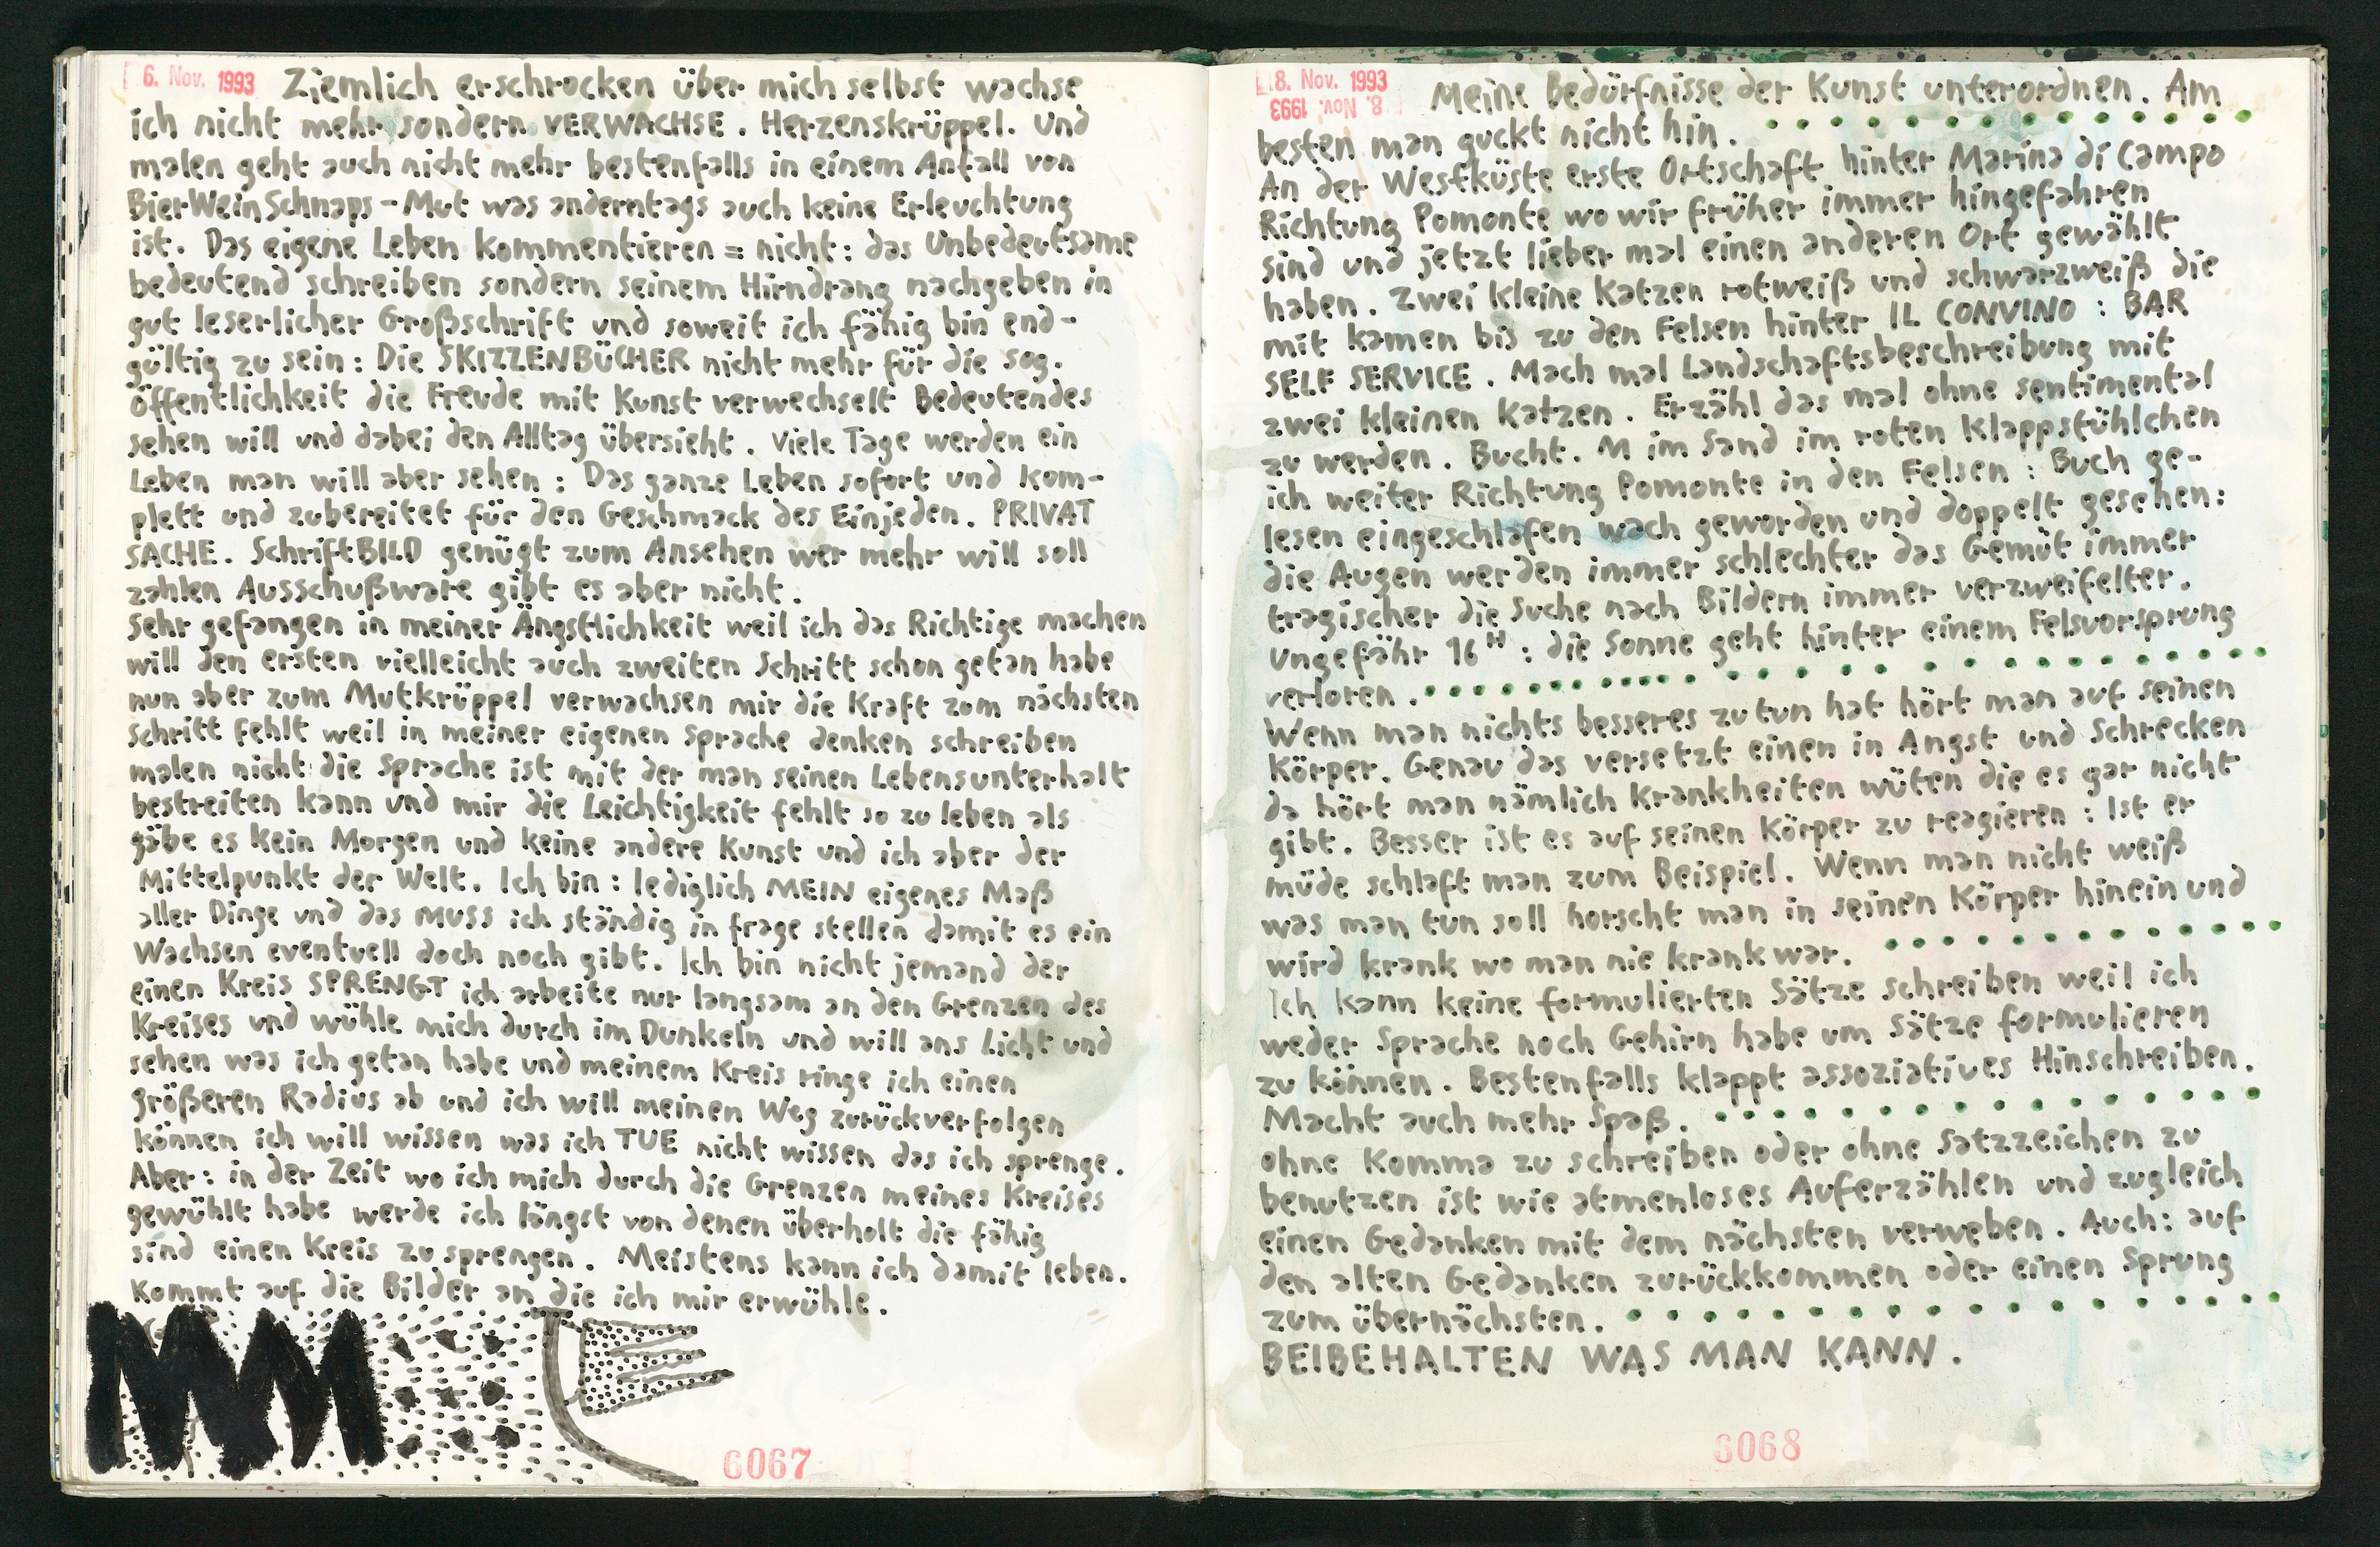 6. Nov. 1993 Ziemlich erschrocken über mich selbst wachse
ich nicht mehr sondern VERWACHSE. Herzenskrüppel. Und
malen geht auch nicht mehr bestenfalls in einem Anfall von
BierWeinSchnaps-Mut was anderntags auch keine Erleuchtung
ist. Das eigene Leben kommentieren = nicht: das Unbedeutsame
bedeutend schreiben sondern seinem Hirndrang nachgeben in
gut leserlicher Großschrift und soweit ich fähig bin end-
gültig zu sein: Die SKIZZENBÜCHER nicht mehr für die sog.
Öffentlichkeit die Freude mit Kunst verwechselt Bedeutendes
sehen will und dabei den Alltag übersieht. Viele Tage werden ein
Leben man will aber sehen: Das ganze Leben sofort und kom-
plett und zubereitet für den Geschmack des Einjeden. PRIVAT
SACHE. SchriftBILD genügt zum Ansehen wer mehr will soll
zahlen Ausschußware gibt es aber nicht.
Sehr gefangen in meiner Ängstlichkeit weil ich das Richtige machen
will den ersten vielleicht auch zweiten Schritt schon getan habe
nun aber zum Mutkrüppel verwachsen mir die Kraft zum nächsten
Schritt fehlt weil in meiner eigenen Sprache denken schreiben
malen nicht die Sprache ist mit der man seinen Lebensunterhalt
bestreiten kann und mir die Leichtigkeit fehlt so zu leben als
gäbe es kein Morgen und keine andere Kunst und ich aber der
Mittelpunkt der Welt. Ich bin: lediglich MEIN eigenes Maß
aller Dinge und das MUSS ich ständig in frage stellen damit es ein
Wachsen eventuell doch noch gibt. Ich bin nicht jemand der
einen Kreis SPRENGT ich arbeite nur langsam an den Grenzen des
Kreises und wühle mich durch im Dunkeln und will ans Licht und
sehen was ich getan habe und meinem Kreis ringe ich einen
größeren Radius ab und ich will meinen Weg zurückverfolgen
können ich will wissen was ich TUE nicht wissen das ich sprenge.
Aber: in der Zeit wo ich mich durch die Grenzen meines Kreises
gewühlt habe werde ich längst von denen überholt die fähig
sind einen Kreis zu sprengen. Meistens kann ich damit leben.
Kommt auf die Bilder an die ich mir erwühle.
6067
8. Nov. 1993
8. Nov. 1993
Meine Bedürfnisse der Kunst unterordnen. Am
besten man guckt nicht hin.
An der Westküste erste Ortschaft hinter Marina di Campo
Richtung Pomonte wo wir früher immer hingefahren
sind und jetzt lieber mal einen anderen Ort gewählt
haben. Zwei kleine Katzen rotweiß und schwarzweiß die
mit kamen bis zu den Felsen hinter IL CONVINO : BAR
SELF SERVICE. Mach mal Landschaftsbeschreibung mit
zwei kleinen Katzen. Erzähl das mal ohne sentimental
zu werden. Bucht. M im Sand im roten Klappstühlchen
ich weiter Richtung Pomonte in den Felsen: Buch ge-
lesen eingeschlafen wach geworden und doppelt gesehen:
die Augen werden immer schlechter das Gemüt immer
tragischer die Suche nach Bildern immer verzweifelter.
Ungefähr 16H: die Sonne geht hinter einem Felsvorsprung
verloren.
Wenn man nichts besseres zu tun hat hört man auf seinen
Körper. Genau das versetzt einen in Angst und Schrecken
da hört man nämlich Krankheiten wüten die es gar nicht
gibt. Besser ist es auf seinen Körper zu reagieren: Ist er
müde schlaft man zum Beispiel. Wenn man nicht weiß
was man tun soll horscht man in seinen Körper hinein und
wird krank wo man nie krank war.
Ich kann keine formulierten Sätze schreiben weil ich
weder Sprache noch Gehirn habe um Sätze formulieren
zu können. Bestenfalls klappt assoziatives Hinschreiben.
Macht auch mehr Spaß.
ohne Komma zu schreiben oder ohne Satzzeichen zu
benutzen ist wie atmenloses Auferzählen und zugleich
einen Gedanken mit dem nächsten verweben. Auch: auf
den alten Gedanken zurückkommen oder einen Sprung
zum übernächsten.
BEIBEHALTEN WAS MAN KANN.
6068